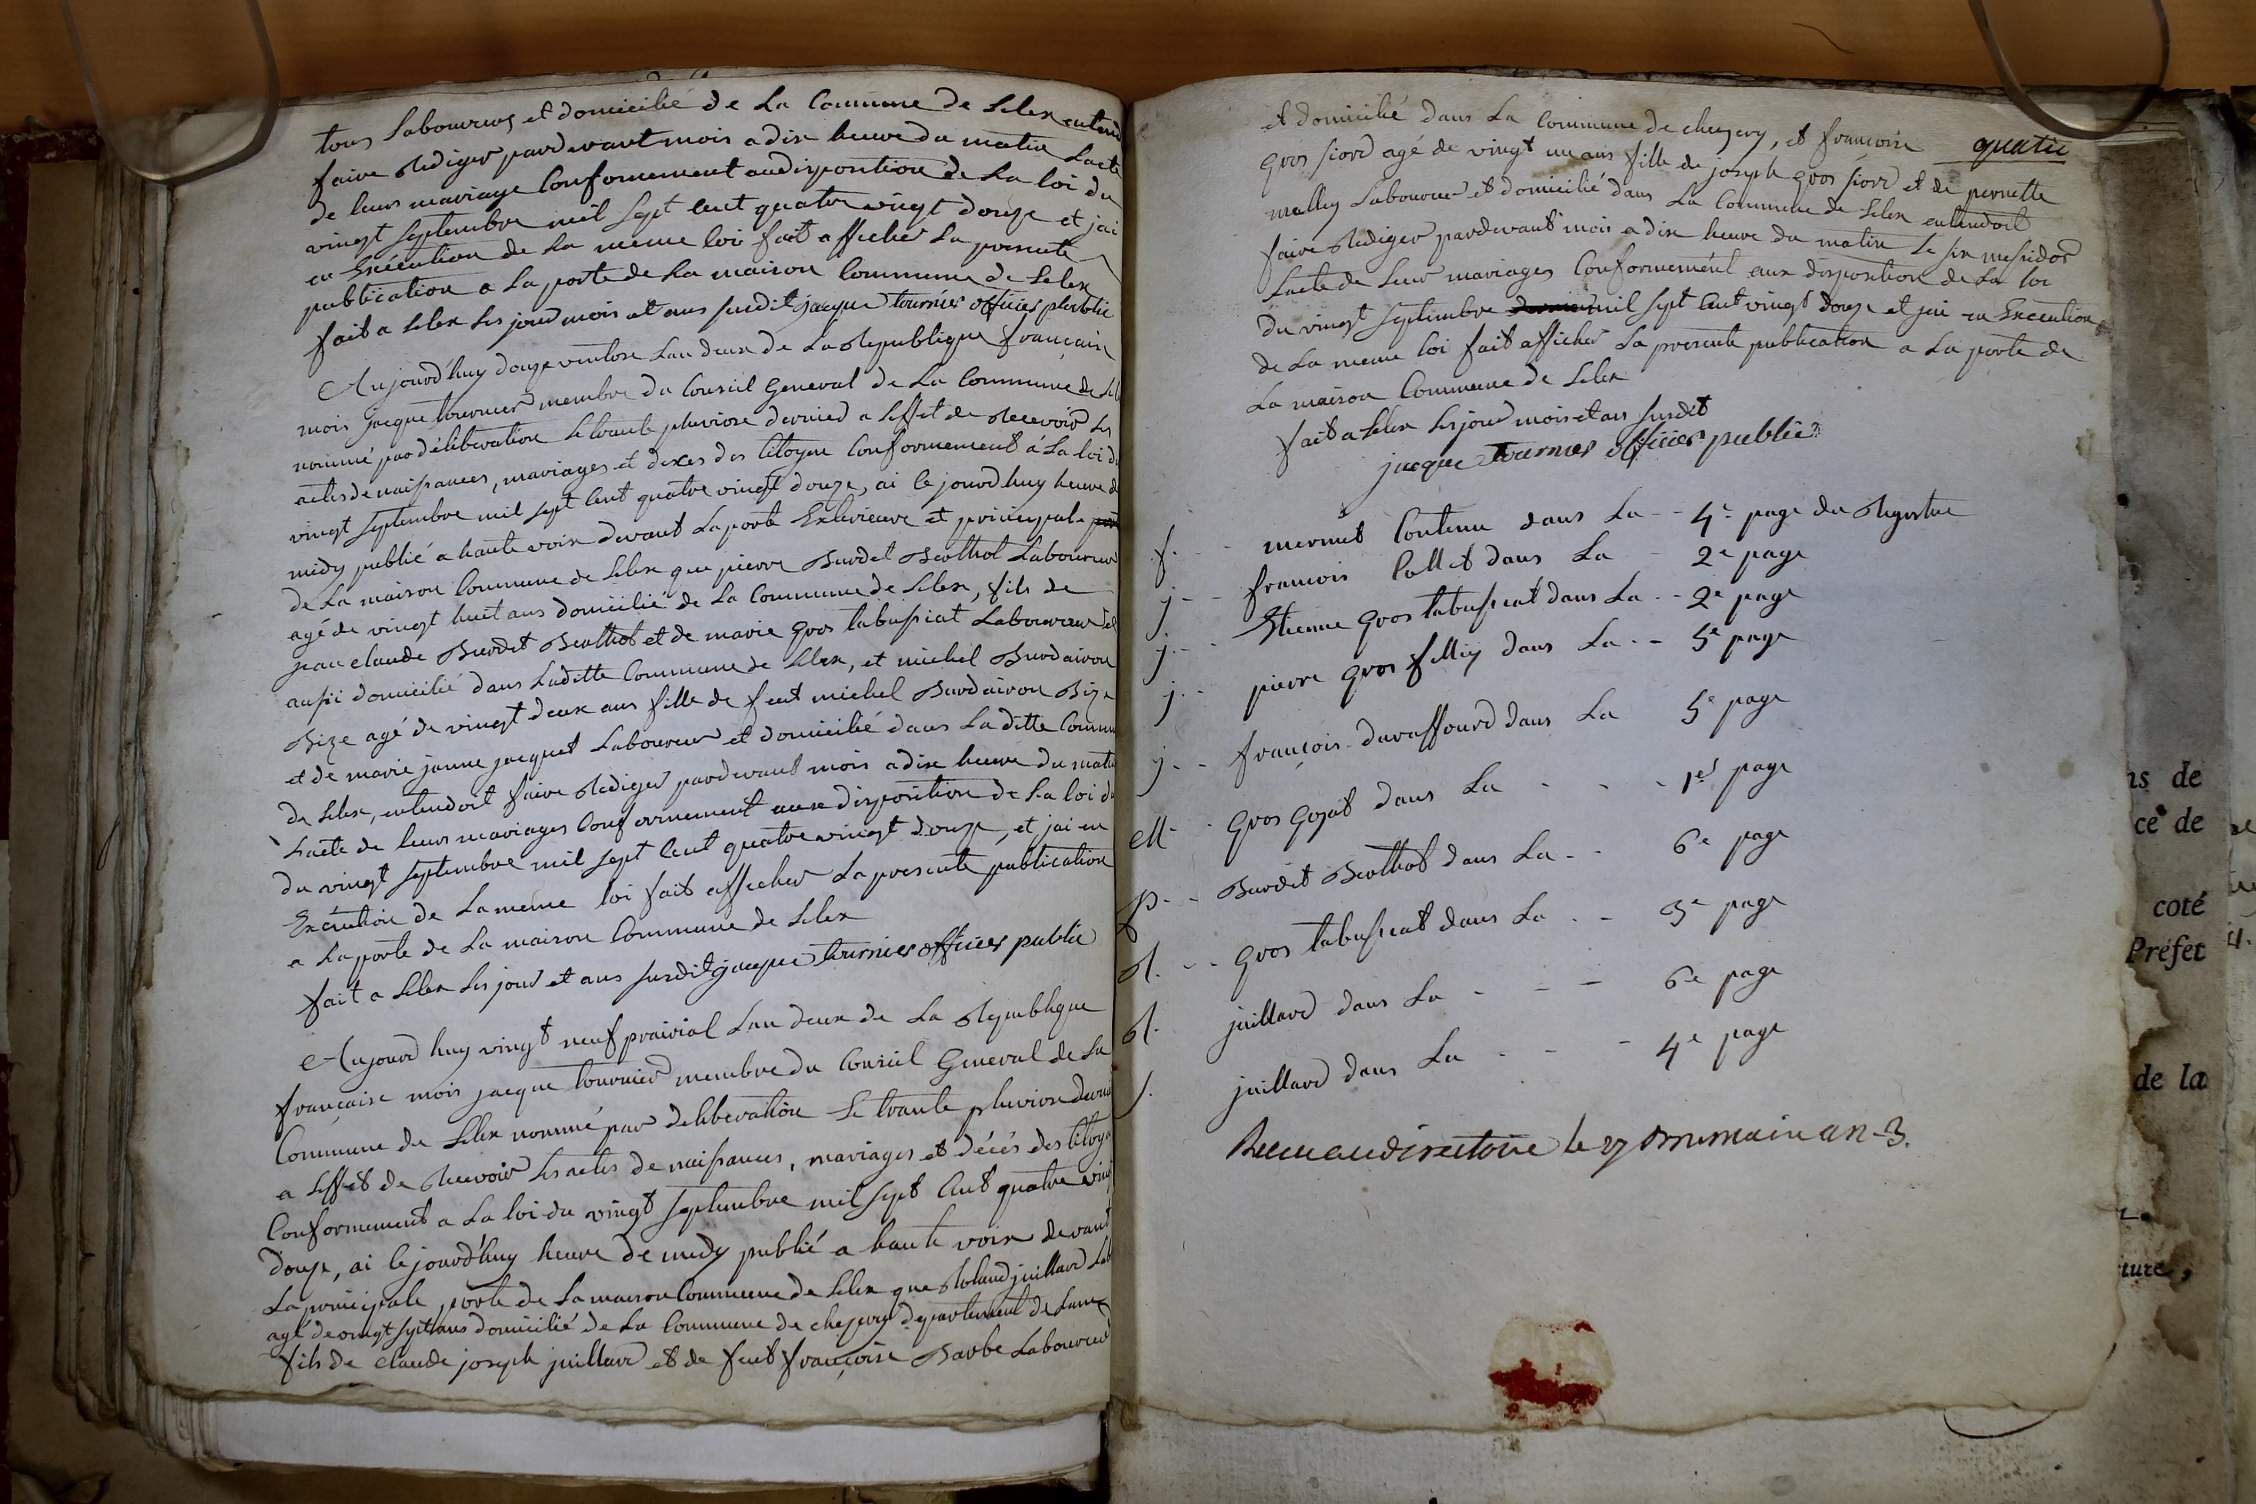 tous laboureurs et domicilié de La Commune de Lelex entend
faire Rediger pardevant mois a dix heure du matin Lacte
de leurs mariage Conformement audisposition de La loi du
vingt septembre mil sept cent quatre vingt douze et jai
en Exécution de La meme loi fait afficher La presente
publication a La porte de La maison Commune de Lelex
fait a Lelex Les jour mois et ans susdit jacque tournier officier publie
Aujourd'huy douze ventose Lan deux de La Republique française
mois jacque tournier membre du Conseil General de La Commune de Lel
nommé par déliberation Le trante pluviose dernier a Leffet de Recevoir Les
actes de naissances, mariages et deces des Citoyen Conformement á La loi du
vingt septembre mil sept Cent quatre vingt douze, ai Cejourd huy heure de
midy publié a haute voix devant La porte Exterieure et principale
de La maison Commune de Lelex que pierre Burdet Beathot Laboureur
agé de vingt huit ans domicilié de La Commune de Lelex, fils de
jean claude Burdet Beathot et de marie gros tabussiat Laboureur et
aussi domicilié dans Laditte Commune de Lelex, et michel Burdairon
Bize agé de vingt deux ans fille de feut michel Burdairon Bize
et de marie janne jacquet Laboureur et domicilié dans La ditte Commun
de Lelex, entendoit faire Rediger pardevant mois a dix heure du matin
Lacte de leurs mariages Conformement aux disposition de La loi du
du vingt septembre mil sept Cent quatre vingt douze, et jai en
Exécution de La meme loi fait afficher La presente publication
a La porte de La maison Commune de Lelex
fait a Lelex Les jour et ans susdit jacque tournier officier public
Aujourd huy vingt neuf prairial Lan deux de La Republique
française mois jacque tournier membre du Conseil General de La
Commune de Lelex nommé par deliberation Le trante pluviose dernier
a Leffet de Recevoir Les actes de naissances, mariages et décés des Citoye
Conformement a La loi du vingt septembre mil sept Cent quatre ving
douze, ai Cejourd'huy heure de midy publié a haute voix devant
La principale porte de La maison Commune de Lelex que Roland juillard Lab
agé de vingt sept ans domicilié de La Commune de chezery departement de Lain
fils de claude joseph juillard et de feut françoise Barbe Laboureur
et domicilié dans La Commune de chezery, et françoise
quatre
gros fiord agé de vingt un ans fille de joseph gros fiord et de pernette
malley Laboureur et domicilié dans La Commune de Lelex entendoit
faire Rediger pardevant mois a dix heure du matin Le six messidor
Lacte de leur mariages Conformement aux disposition de La loi
du vingt septembre mil sept Cent vingt douze et jai en Execution
de La meme loi fait afficher La presente publication a La porte de
La maison Commune de Lelex
fait a Lelex Les jour mois et ans susdit
jacque tournier officier public
f. - - mermet Contenu dans La - - 4e page du Registre
j - - françois Collet dans La - 2e page
j. - - Etienne gros tabussiat dans La - - 2e page
j. - - pierre gros filley dans La - - 5e page
j - - françois duraffourd dans La 5e page
M - - gros gojat dans La - - - 1er page
p - - Burdet Beathot dans La - - 6e page
R. - - gros tabussiat dans La - - 3e page
R. juillard dans La - - - 6e page
j. juillard dans La - - - 4e page
Recu au directoire le 27 brumaire an 3.
ns de
ce de
coté
Préfet
de la
ture,